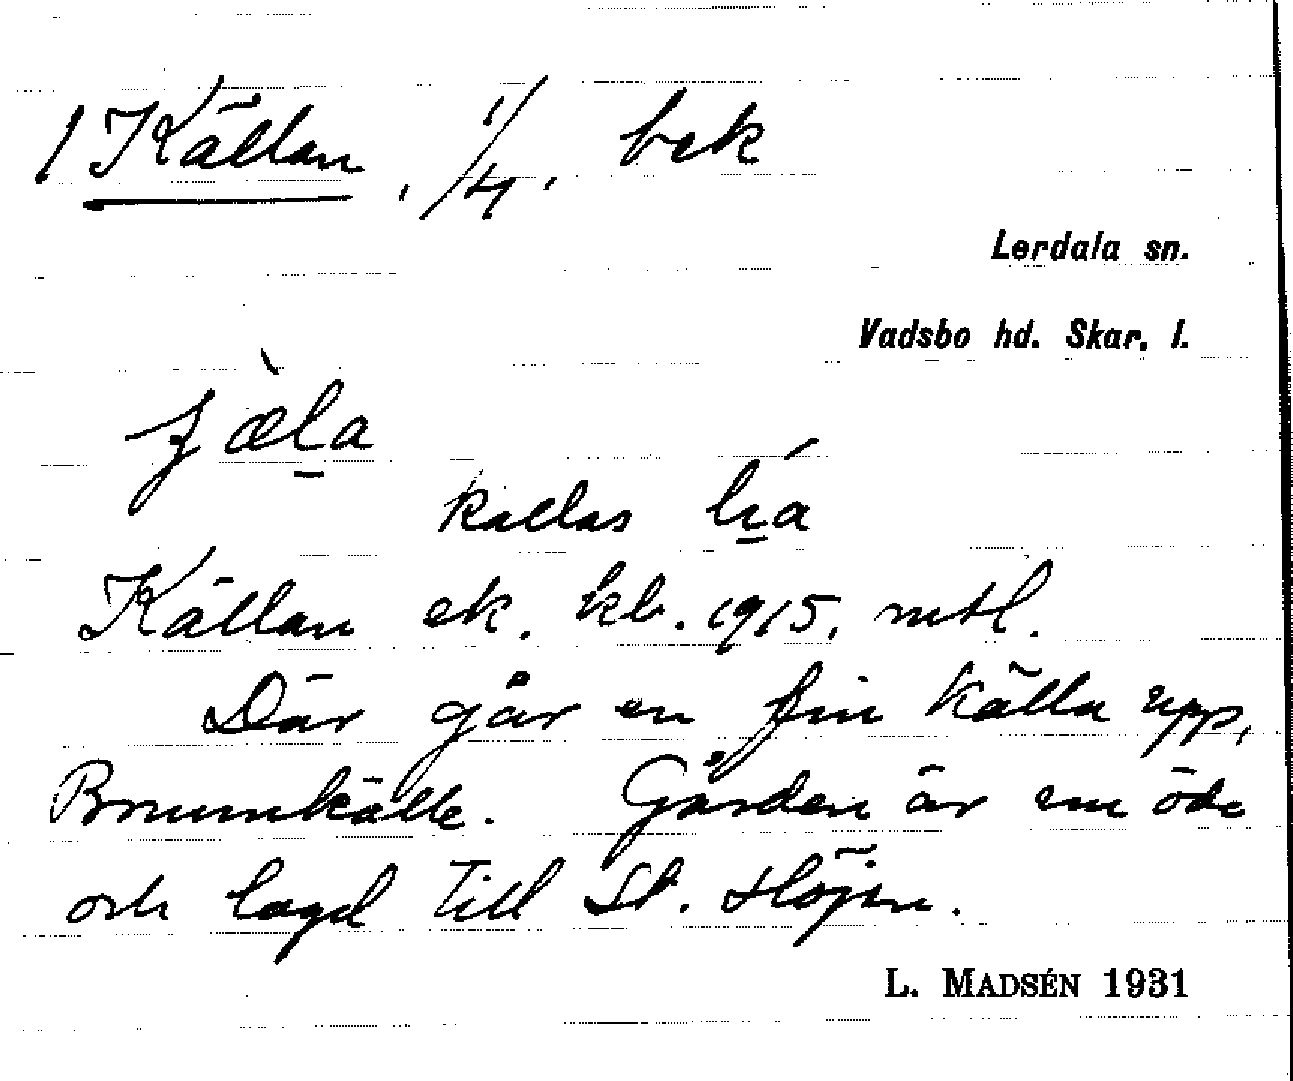 1 Källan, 1/4, bek
Lerdala sn.
Vadsbo hd. Skar. l.
kallas
Källan ek. kb. 1915, mtl.
Där går en fin källa upp,
Brunnkälle. Gården är nu öde
och lagd till St. Höjen.
L. MADSÉN 1931